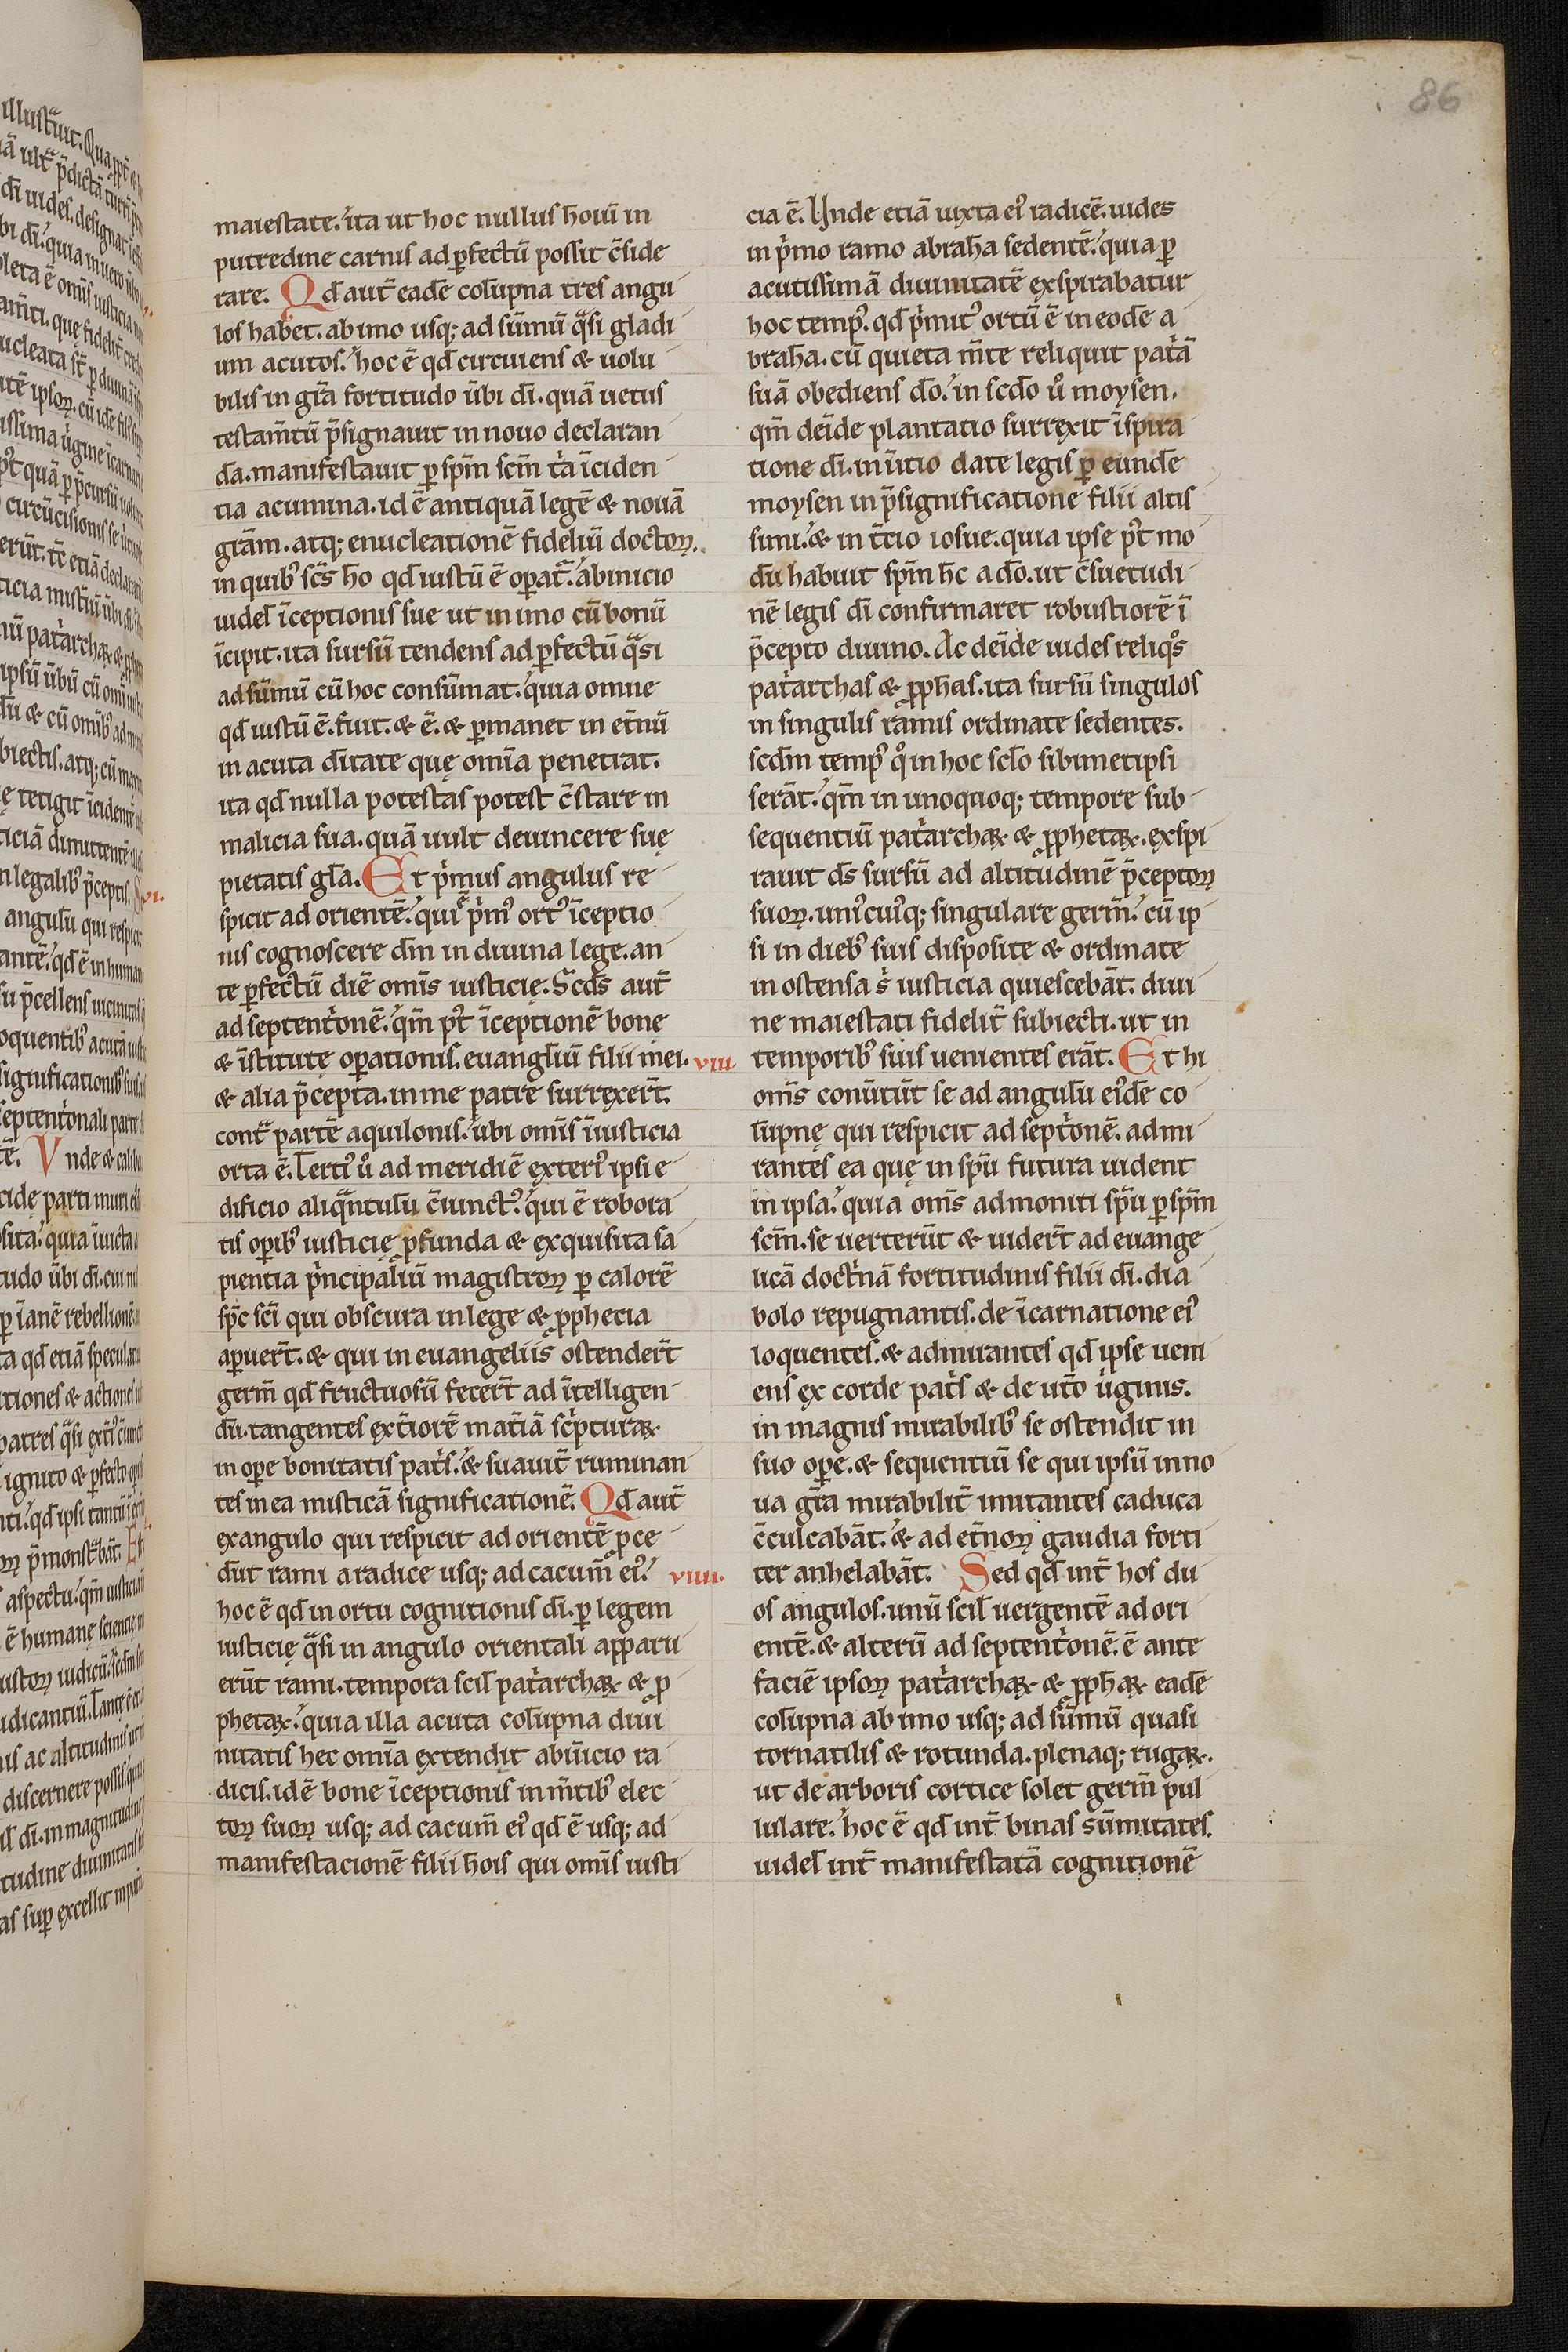 86
maiestate. ita ut hoc nullus hoım̄ in
putredine carnis ad ꝑfectū possit c̄side
rare. Qd̄ aut̄ eadē colūpna tres angu
los habet. ab imo usq; ad sūmū qͣsi gladi
um acutos. hoc ē qd̄ circuiens & uolu
bilis in gr̄a fortitudo ūbi dı̄. quā uetus
testam̄tū p̄signauit in nouo declaran
da. manifestauit ꝑ sp̄m sc̄m tͥa īciden
tia acumina. id ē antiquā legē & nouā
grām. atq; enucleationē fideliū doctoꝝ.
in quibꝰ sc̄s ho qd̄ iustū ē operat̄. ab inicio
uidel̄ īceptionis sue ut in imo cū bonū
īcipit. ita sursū tendens ad ꝑfectū qͣsi
ad sūmū cū hoc consūmat. quia omne
qd̄ iustū ē. fuit. & ē. & ꝑmanet in et̄nū
in acuta dı̄tate quę om̄ia penetrat.
ita qd̄ nulla potestas potest c̄stare in
malicia sua. quā uult deuincere suę
pietatis gl̄a. Et pͥmus angulus re
spicit ad orientē. qui ͣ pͥmꝰ ortꝰ īceptio
nis cognoscere dm̄ in diuina lege. an
te ꝑfectū diē om̄is iusticię. Scd̄s aut̄
ad septentͥonē. qm̄ pꝰt īceptionē bone
& īstitutę operationis. euangl̄iū filii mei. viii.
& alia p̄cepta. in me patre surrexer̄t.
contͣ partē aquilonis. ubi om̄is īiusticia
orta ē. Tertiꝰ uͦ ad meridiē exteriꝰ ipsi e
dificio aliqͣntulū c̄iunctꝰ. qui ē robora
tis operibꝰ iusticię ꝓfunda & exquisita sa
pientia pͥncipaliū magistroꝝ ꝑ calorē
sp̄c sc̄i qui obscura in lege & ꝓphecia
aperuer̄t. & qui in euangeliis ostender̄t
germ̄ qd̄ fructuosū fecer̄t ad ītelligen
dū. tangentes ext̄iorē mat̄iā scͥpturaꝝ
in ope bonitatis patͥs. & suauit̄ ruminan
tes in ea misticā significationē. Qd̄ aut̄
ex angulo qui respicit ad orientē ꝓce
dūt rami a radice usq; ad cacum̄ eiꝰ. viiii.
hoc ē qd̄ in ortu cognitionis dı̄. ꝑ legem
iusticię qͣsi in angulo orientali apparu
erūt rami. tempora scil̄ patͥarchaꝝ & ꝓ
phetaꝝ. quia illa acuta colūpna diui
nitatis hec om̄ia extendit ab inicio ra
dicis. id ē bone īceptionis in m̄tibꝰ elec
toꝝ suoꝝ usq; ad cacum̄ eiꝰ qd̄ ē usq; ad
manifestacionē filii hoīs qui om̄is iusti
cia ē. Unde etiā iuxta eiꝰ radicē. uides
in pͥmo ramo abrahā sedentē. quia ꝑ
acutissimā diuinitatē exspirabatur
hoc tempꝰ. qd̄ pͥmitꝰ ortū ē in eodē a
brahā. cū quieta m̄te reliquit patͥā
suā obediens do. in scdo uͦ moysen.
qm̄ deīde plantatio surrexit īspira
tione dı̄. in initio date legis ꝑ eundē
moysen in p̄significatione filii altis
simi. & in t̄cio iosue. quia ipse pꝰt mo
dū habuit sp̄m hc̄ a do. ut c̄suetudi
nē legis dı̄ confirmaret robustiorē ī
p̄cepto diuino. Ac deīde uides reliqͦs
patͥarchas & ꝓphas. ita sursū singulos
in singulis ramis ordinate sedentes.
scdm̄ tempꝰ qͦ in hoc sclo sibimetipsi
serāt. qm̄ in unoquoq; tempore sub
sequentiū patͥarchaꝝ & ꝓphetaꝝ. exspi
rauit ds̄ sursū ad altitudinē p̄ceptoꝝ
suoꝝ. unicuiq; singulare germ̄. cū ip
si in diebꝰ suis disposite & ordinate
in ostensa sͥ iusticia quiescebāt. diui
ne maiestati fidelit̄ subiecti. ut in
temporibꝰ suis uenientes erāt. Et hi
om̄s conūtūt se ad angulū eiꝰdē co
lūpnę qui respicit ad septͥonē. admi
rantes ea quę in sp̄u futura uident
in ipsa. quia om̄s admoniti sp̄u ꝑ sp̄m
scm̄. se uerterūt & uider̄t ad euange
licā doctͥnā fortitudinis filii dı̄. dia
bolo repugnantis. de īcarnatione eiꝰ
loquentes. & admirantes qd̄ ipse ueni
ens ex corde patͥs & de ut̄o uͥginis.
in magnis mirabilibꝰ se ostendit in
suo ope. & sequentiū se qui ipsū in no
ua gr̄a mirabilit̄ imitantes caduca
c̄culcabāt. & ad et̄noꝝ gaudia forti
ter anhelabāt. Sed qd̄ int̄ hos du
os angulos. unū scil̄ uergentē ad ori
entē. & alterū ad septentͥonē. ē ante
faciē ipsoꝝ patͥarchaꝝ & ꝓphaꝝ eadē
colūpna ab imo usq; ad sūmū quasi
tornatilis & rotunda. plenaq; rugaꝝ.
ut de arboris cortice solet germ̄ pul
lulare. hoc ē qd̄ int̄ binas sūmitates.
uidel̄ int̄ manifestatā cognitionē